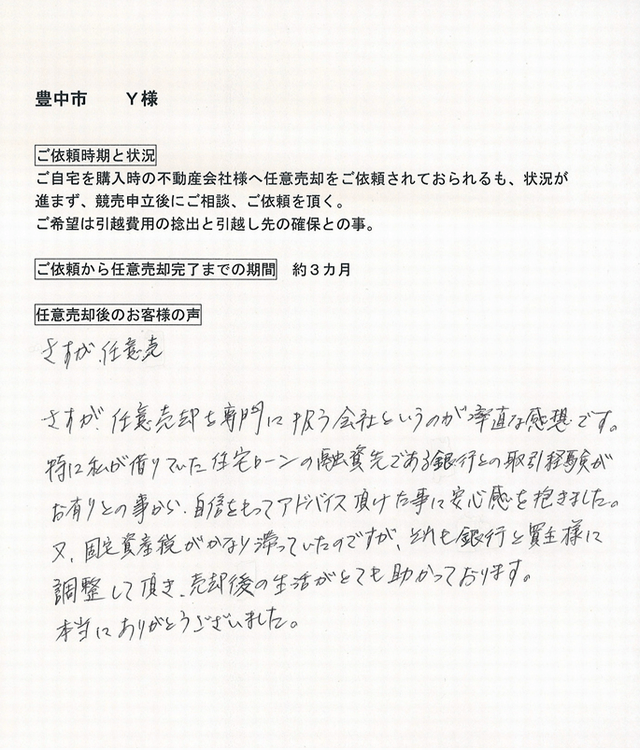 豊中市　　Y様
ご依頼時期と状況
ご自宅を購入時の不動産会社様へ任意売却をご依頼されておられるも、状況が
進まず、競売申立後にご相談、ご依頼を頂く。
ご希望は引越費用の捻出と引越し先の確保との事。
ご依頼から任意売却完了までの期間　約３カ月
任意売却後のお客様の声
さすが、任意売
さすが 任意売却を専門に扱う会社というのが率直な感想です。
特に私が借りていた住宅ローンの融資先である銀行との取引経験が
お有りとの事から、自信をもってアドバイス頂けた事に安心感を抱きました。
又、固定資産税がかなり滞っていたのですが、それも銀行と買主様に
調整して頂き、売却後の生活がとても助かっております。
本当にありがとうございました。